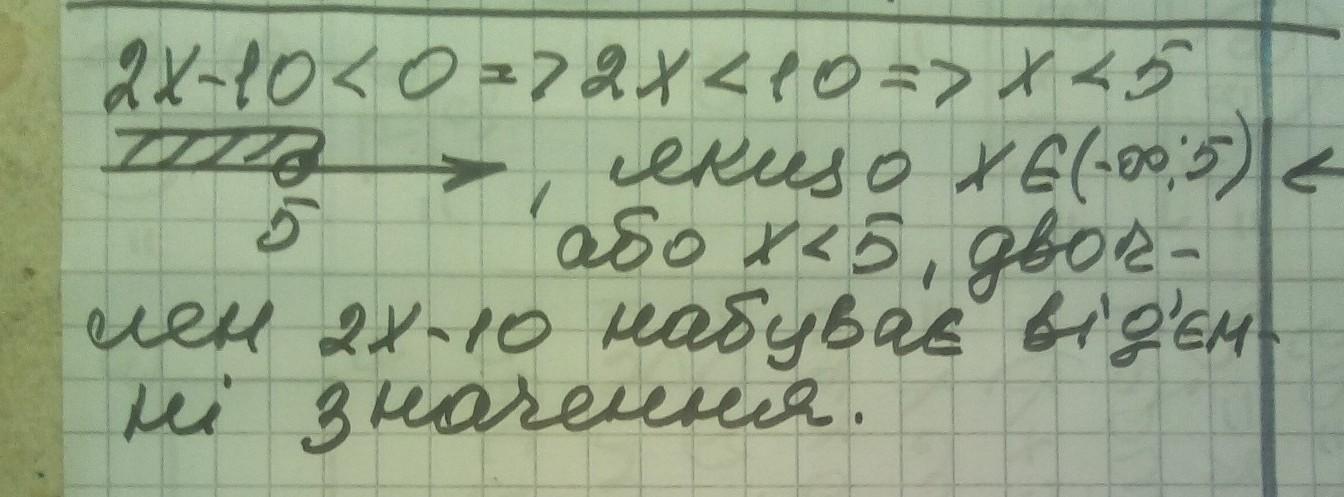 2x-10<0=>2x<10=>x<5
, якщо xϵ(-∞;5) ←
5
або x<5, двоч-
лен 2x-10 набуває від'єм-
ні значення.